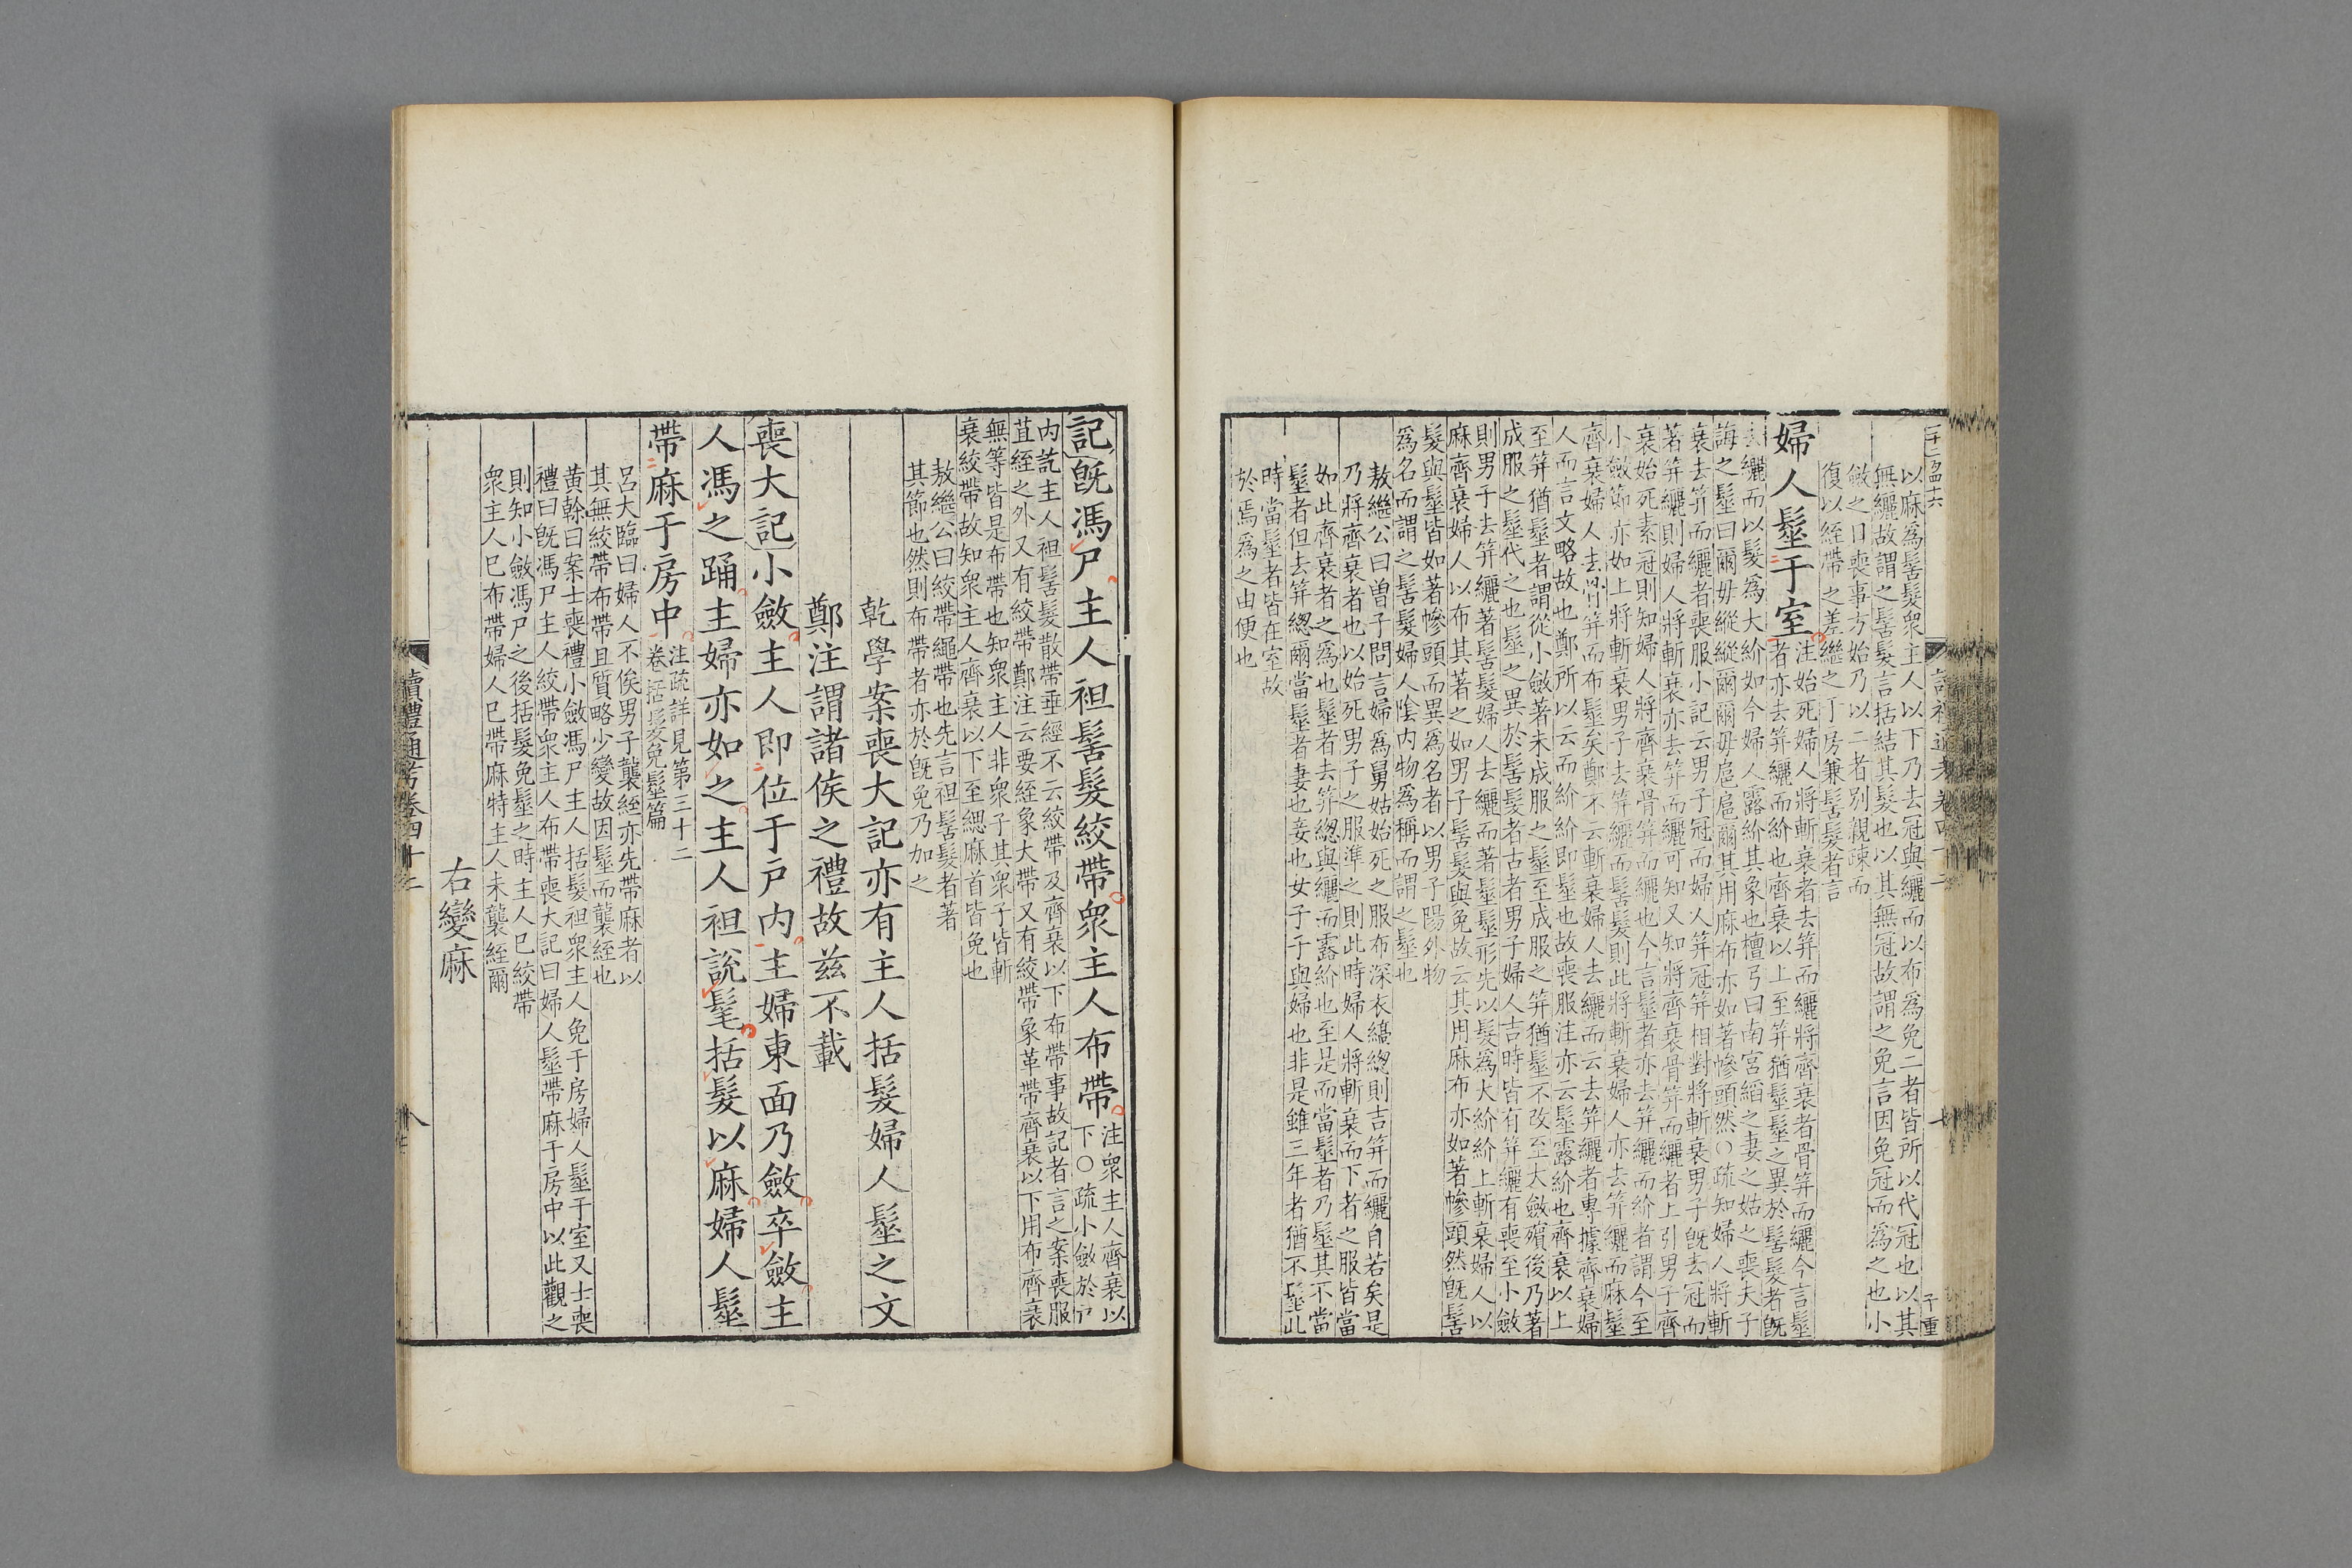 以麻爲髺髮衆主人以下乃去冠與纚而以布爲免二者皆所以代冠也以其
無纚故謂之髺髮言括結其髮也以其無冠故謂之免言因免冠而爲之也小
斂之日喪事方始乃以二者别親疎而
復以絰帶之差繼之丁房兼髺髮者言
婦人髽于室
注始死婦人將斬衰者去笄而纚將齊衰者骨笄而纚今言髽
者亦去笄纚而紒也齊衰以上至笄猶髽髽之異於髺髮者旣
去纚而以髮爲大紒如今婦人露紒其象也檀弓曰南宮縚之妻之姑之喪夫子
誨之髽曰爾毋縱縱爾爾毋扈扈爾其用麻布亦如著幓頭然○疏知婦人將斬
衰去笄而纚者喪服小記云男子冠而婦人笄冠笄相對將斬衰男子旣去冠而
著笄纚則婦人將斬衰亦去笄而纚可知又知將齊衰骨笄而纚者上引男子齊
衰始死素冠則知婦人將齊衰骨笄而纚也今言髽者亦去笄纚而紒者謂今至
小斂節亦如上將斬衰男子去笄纚而髺髮則此將斬衰婦人亦去笄纚而麻髽
齊衰婦人去骨笄而布髽矣鄭不云斬衰婦人去纚而云去笄纚者專據齊衰婦
人而言文略故也鄭所以云而紒紒即髽也故喪服注亦云髽露紒也齊衰以上
至笄猶髽者謂從小斂著未成服之髽至成服之笄猶髽不改至大斂殯後乃著
成服之髽代之也髽之異於髺髮者古者男子婦人吉時皆有笄纚有喪至小斂
則男子去笄纚著髺髮婦人去纚而著髽髽形先以髮爲大紒紒上斬衰婦人以
麻齊衰婦人以布其著之如男子髺髮與免故云其用麻布亦如著幓頭然旣髺
髮與髽皆如著幓頭而異爲名者以男子陽外物
爲名而謂之髺髮婦人陰内物爲稱而謂之髽也
敖繼公曰曾子問言婦爲舅姑始死之服布深衣縞總則吉笄而纚自若矣是
乃將齊衰者也以始死男子之服準之則此時婦人將斬衰而下者之服皆當
如此齊衰者之爲也髽者去笄總與纚而露紒也至是而當髽者乃髽其不當
髽者但去笄總爾當髽者妻也妾也女子子與婦也非是雖三年者猶不髽此
時當髽者皆在室故
於焉爲之由便也
記旣馮尸主人袒髺髮絞帶衆主人布帶
注衆主人齊衰以
下○疏小斂於戸
内訖主人袒髺髮散帶垂經不云絞帶及齊衰以下布帶事故記者言之案喪服
苴絰之外又有絞帶鄭注云要絰象大帶又有絞帶象革帶齊衰以下用布齊衰
無等皆是布帶也知衆主人非衆子其衆子皆斬
衰絞帶故知衆主人齊衰以下至緦麻首皆免也
敖繼公曰絞帶繩帶也先言袒髺髮者著
其節也然則布帶者亦於旣免乃加之
乾學案喪大記亦有主人括髮婦人髽之文
鄭注謂諸侯之禮故兹不載
喪大記小斂主人即位于戸内主婦東面乃斂卒斂主
人馮之踊主婦亦如之主人袒說髦括髮以麻婦人髽
帶麻于房中
注疏詳見第三十二
卷括髮免髽篇
呂大臨曰婦人不俟男子襲絰亦先帶麻者以
其無絞帶布帶且質略少變故因髽而襲絰也
黃榦曰案士喪禮小斂馮尸主人括髮袒衆主人免于房婦人髽于室又士喪
禮曰旣馮尸主人絞帶衆主人布帶喪大記曰婦人髽帶麻于房中以此觀之
則知小斂馮尸之後括髮免髽之時主人巳絞帶
衆主人巳布帶婦人巳帶麻特主人未襲絰爾
右變麻
讀禮通考卷四十二